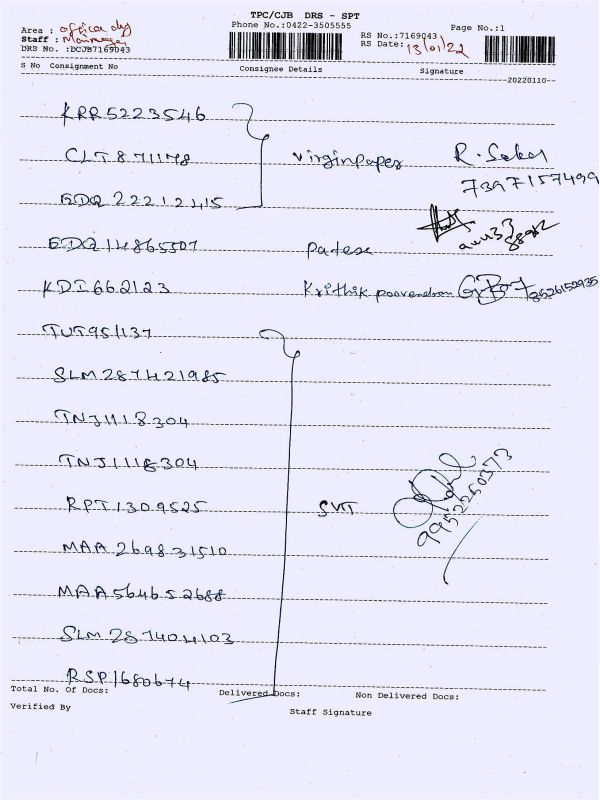 TPC/CJB DRS - SPT
Phone No.:0422-3505555
Page No.:1
Area : office dly
Staff :
DRS No. :DCJB7169043
RS No.:7169043
RS Date: 13/01/22
S No Consignment No Consignee Details Signature
20220110
KRR5223546
CLT871178 virginpaper R. Sekar
7397157499
EDQ22212415
EDQ14865507 Patex
KDI662123 Krithik poovendran 8526152935
TUT951137
SLM287421985
TNJ1118304
TNJ1118304
RPT1309525 SVT 9952260373
MAA269831510
MAA564652688
SLM287404103
RSP1680674
Total No. Of Docs: Delivered Docs: Non Delivered Docs:
Verified By Staff Signature